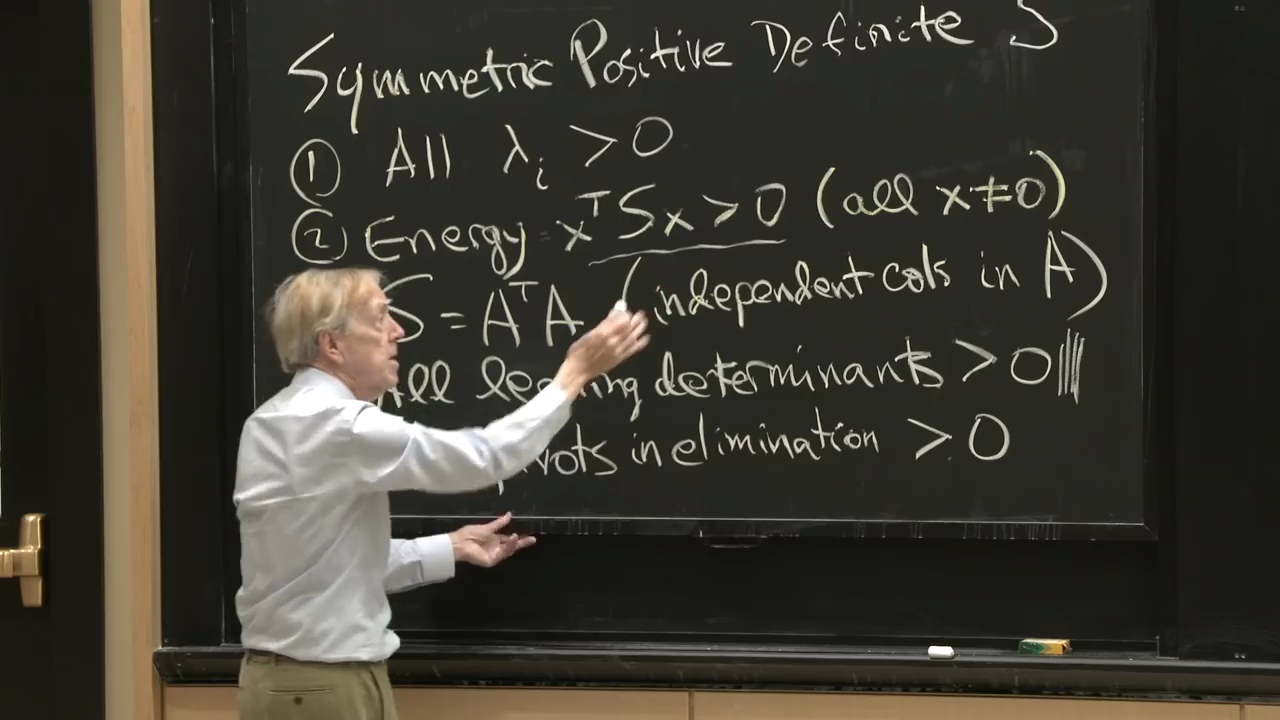 Symmetric Positive Definite S
① All λᵢ > 0
② Energy = xᵀSx > 0 (all x ≠ 0)
S = AᵀA (independent cols in A)
All leading determinants > 0
in elimination > 0